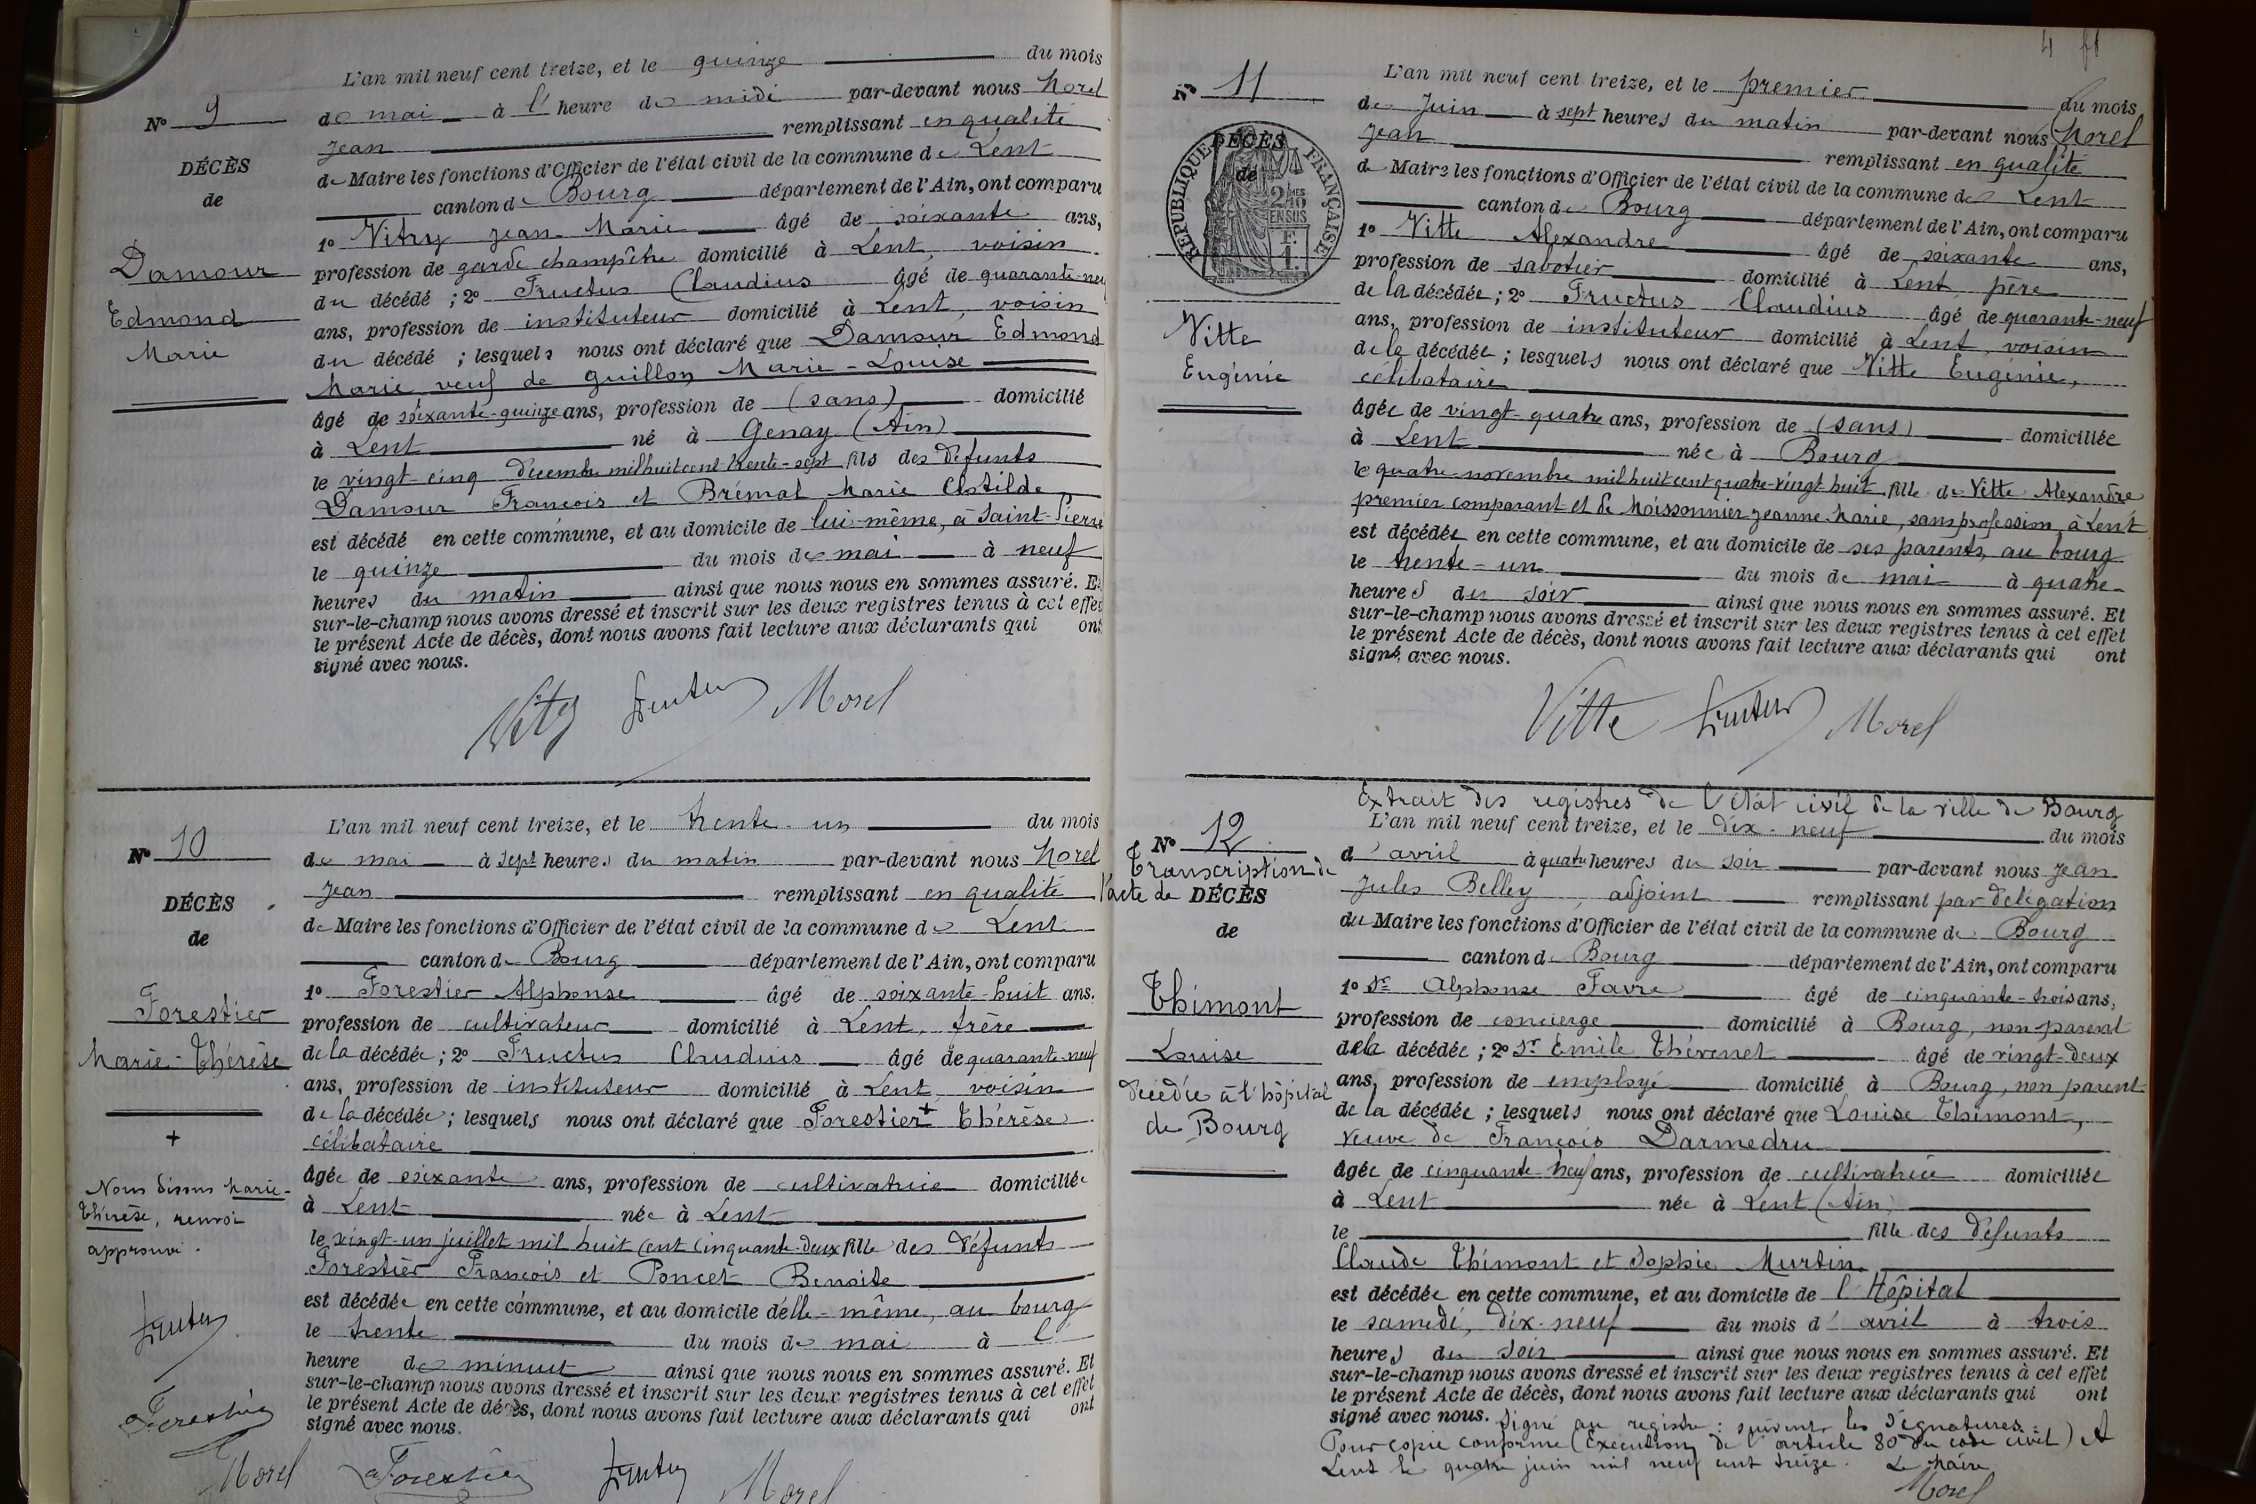 L'an mil neuf cent treize, et le quinze du mois
N° 9
de mai à l' heure de midi par-devant nous Morel
Jean remplissant en qualité
DÉCÈS
de Maire les fonctions d'Officier de l'état civil de la commune de Lent
de
canton de Bourg département de l'Ain, ont comparu
1° Vitry Jean-Marie âgé de soixante ans,
Damour
profession de garde champêtre domicilié à Lent, voisin
du décédé ; 2° Fructus Claudius âgé de quarante-neuf
Edmond
ans, profession de instituteur domicilié à Lent, voisin
Marie
du décédé ; lesquels nous ont déclaré que Damour Edmond
Marie veuf de Guillon Marie-Louise
âgé de soixante-quinze ans, profession de (sans) domicilié
à Lent né à Genay (Ain)
le vingt-cinq décembre mil huit cent trente-sept fils des défunts
Damour François et Brémal Marie Clotilde
est décédé en cette commune, et au domicile de lui-même, à Saint-Pierre
le quinze du mois de mai à neuf
heures du matin ainsi que nous nous en sommes assuré. Et
sur-le-champ nous avons dressé et inscrit sur les deux registres tenus à cet effet
le présent Acte de décès, dont nous avons fait lecture aux déclarants qui ont
signé avec nous.
Vitry Fructus Morel
L'an mil neuf cent treize, et le trente-un du mois
N° 10
de mai à sept heures du matin par-devant nous Morel
Jean remplissant en qualité
DÉCÈS
de Maire les fonctions d'Officier de l'état civil de la commune de Lent
de
canton de Bourg département de l'Ain, ont comparu
1° Forestier Alphonse âgé de soixante-huit ans.
Forestier
profession de cultivateur domicilié à Lent, frère
Marie-Thérèse
de la décédée ; 2° Fructus Claudius âgé de quarante-neuf
ans, profession de instituteur domicilié à Lent, voisin
de la décédée ; lesquels nous ont déclaré que Forestier + Thérèse
+
célibataire
Nous disons Marie-
Thérèse, renvoi
approuvé.
âgée de soixante ans, profession de cultivatrice domiciliée
à Lent née à Lent
le vingt-un juillet mil huit cent cinquante-deux fille des défunts
Forestier François et Poncet Benoite
est décédée en cette commune, et au domicile d'elle-même, au bourg
le trente du mois de mai à l'
heure de minuit ainsi que nous nous en sommes assuré. Et
sur-le-champ nous avons dressé et inscrit sur les deux registres tenus à cet effet
le présent Acte de décès, dont nous avons fait lecture aux déclarants qui ont
signé avec nous.
Fructus
Forestier
Morel
Forestier Fructus Morel
4
L'an mil neuf cent treize, et le premier du mois
N° 11
de Juin à sept heures du matin par-devant nous Morel
Jean remplissant en qualité
DÉCÈS
de
RÉPUBLIQUE FRANÇAISE
2/10 EN SUS
F. 1.
de Maire les fonctions d'Officier de l'état civil de la commune de Lent
canton de Bourg département de l'Ain, ont comparu
1° Vitte Alexandre âgé de soixante ans,
profession de sabotier domicilié à Lent père
de la décédée ; 2° Fructus Claudius âgé de quarante-neuf
Vitte
Eugénie
ans, profession de instituteur domicilié à Lent, voisin
de la décédée ; lesquels nous ont déclaré que Vitte Eugénie,
célibataire
âgée de vingt-quatre ans, profession de (sans) domiciliée
à Lent née à Bourg
le quatre novembre mil huit cent quatre-vingt-huit fille de Vitte Alexandre
premier comparant et de Moissonnier Jeanne-Marie, sans profession, à Lent
est décédée en cette commune, et au domicile de ses parents, au bourg
le trente-un du mois de mai à quatre
heures du soir ainsi que nous nous en sommes assuré. Et
sur-le-champ nous avons dressé et inscrit sur les deux registres tenus à cet effet
le présent Acte de décès, dont nous avons fait lecture aux déclarants qui ont
signé avec nous.
Vitte Fructus Morel
Extrait des registres de l'état civil de la ville de Bourg
L'an mil neuf cent treize, et le dix-neuf du mois
N° 12
Transcription de
l'acte de DÉCÈS
de
d'avril à quatre heures du soir par-devant nous Jean
Jules Belley, adjoint remplissant par délégation
du Maire les fonctions d'Officier de l'état civil de la commune de Bourg
canton de Bourg département de l'Ain, ont comparu
1° Sr Alphonse Favre âgé de cinquante-trois ans,
Thimont
Louise
décédée à l'hôpital
de Bourg
profession de concierge domicilié à Bourg, non parent
de la décédée ; 2° Sr Emile Thévenet âgé de vingt-deux
ans, profession de employé domicilié à Bourg, non parent
de la décédée ; lesquels nous ont déclaré que Louise Thimont,
veuve de François Darmedru
âgée de cinquante-neuf ans, profession de cultivatrice domiciliée
à Lent née à Lent (Ain)
le fille des défunts
Claude Thimont et Sophie Murtin
est décédée en cette commune, et au domicile de l'Hôpital
le samedi, dix-neuf du mois d'avril à trois
heures du soir ainsi que nous nous en sommes assuré. Et
sur-le-champ nous avons dressé et inscrit sur les deux registres tenus à cet effet
le présent Acte de décès, dont nous avons fait lecture aux déclarants qui ont
signé avec nous. Signé au registre : suivent les signatures.
Pour copie conforme (Exécution de l'article 80 du code civil) A
Lent le quatre juin mil neuf cent treize. Le Maire
Morel